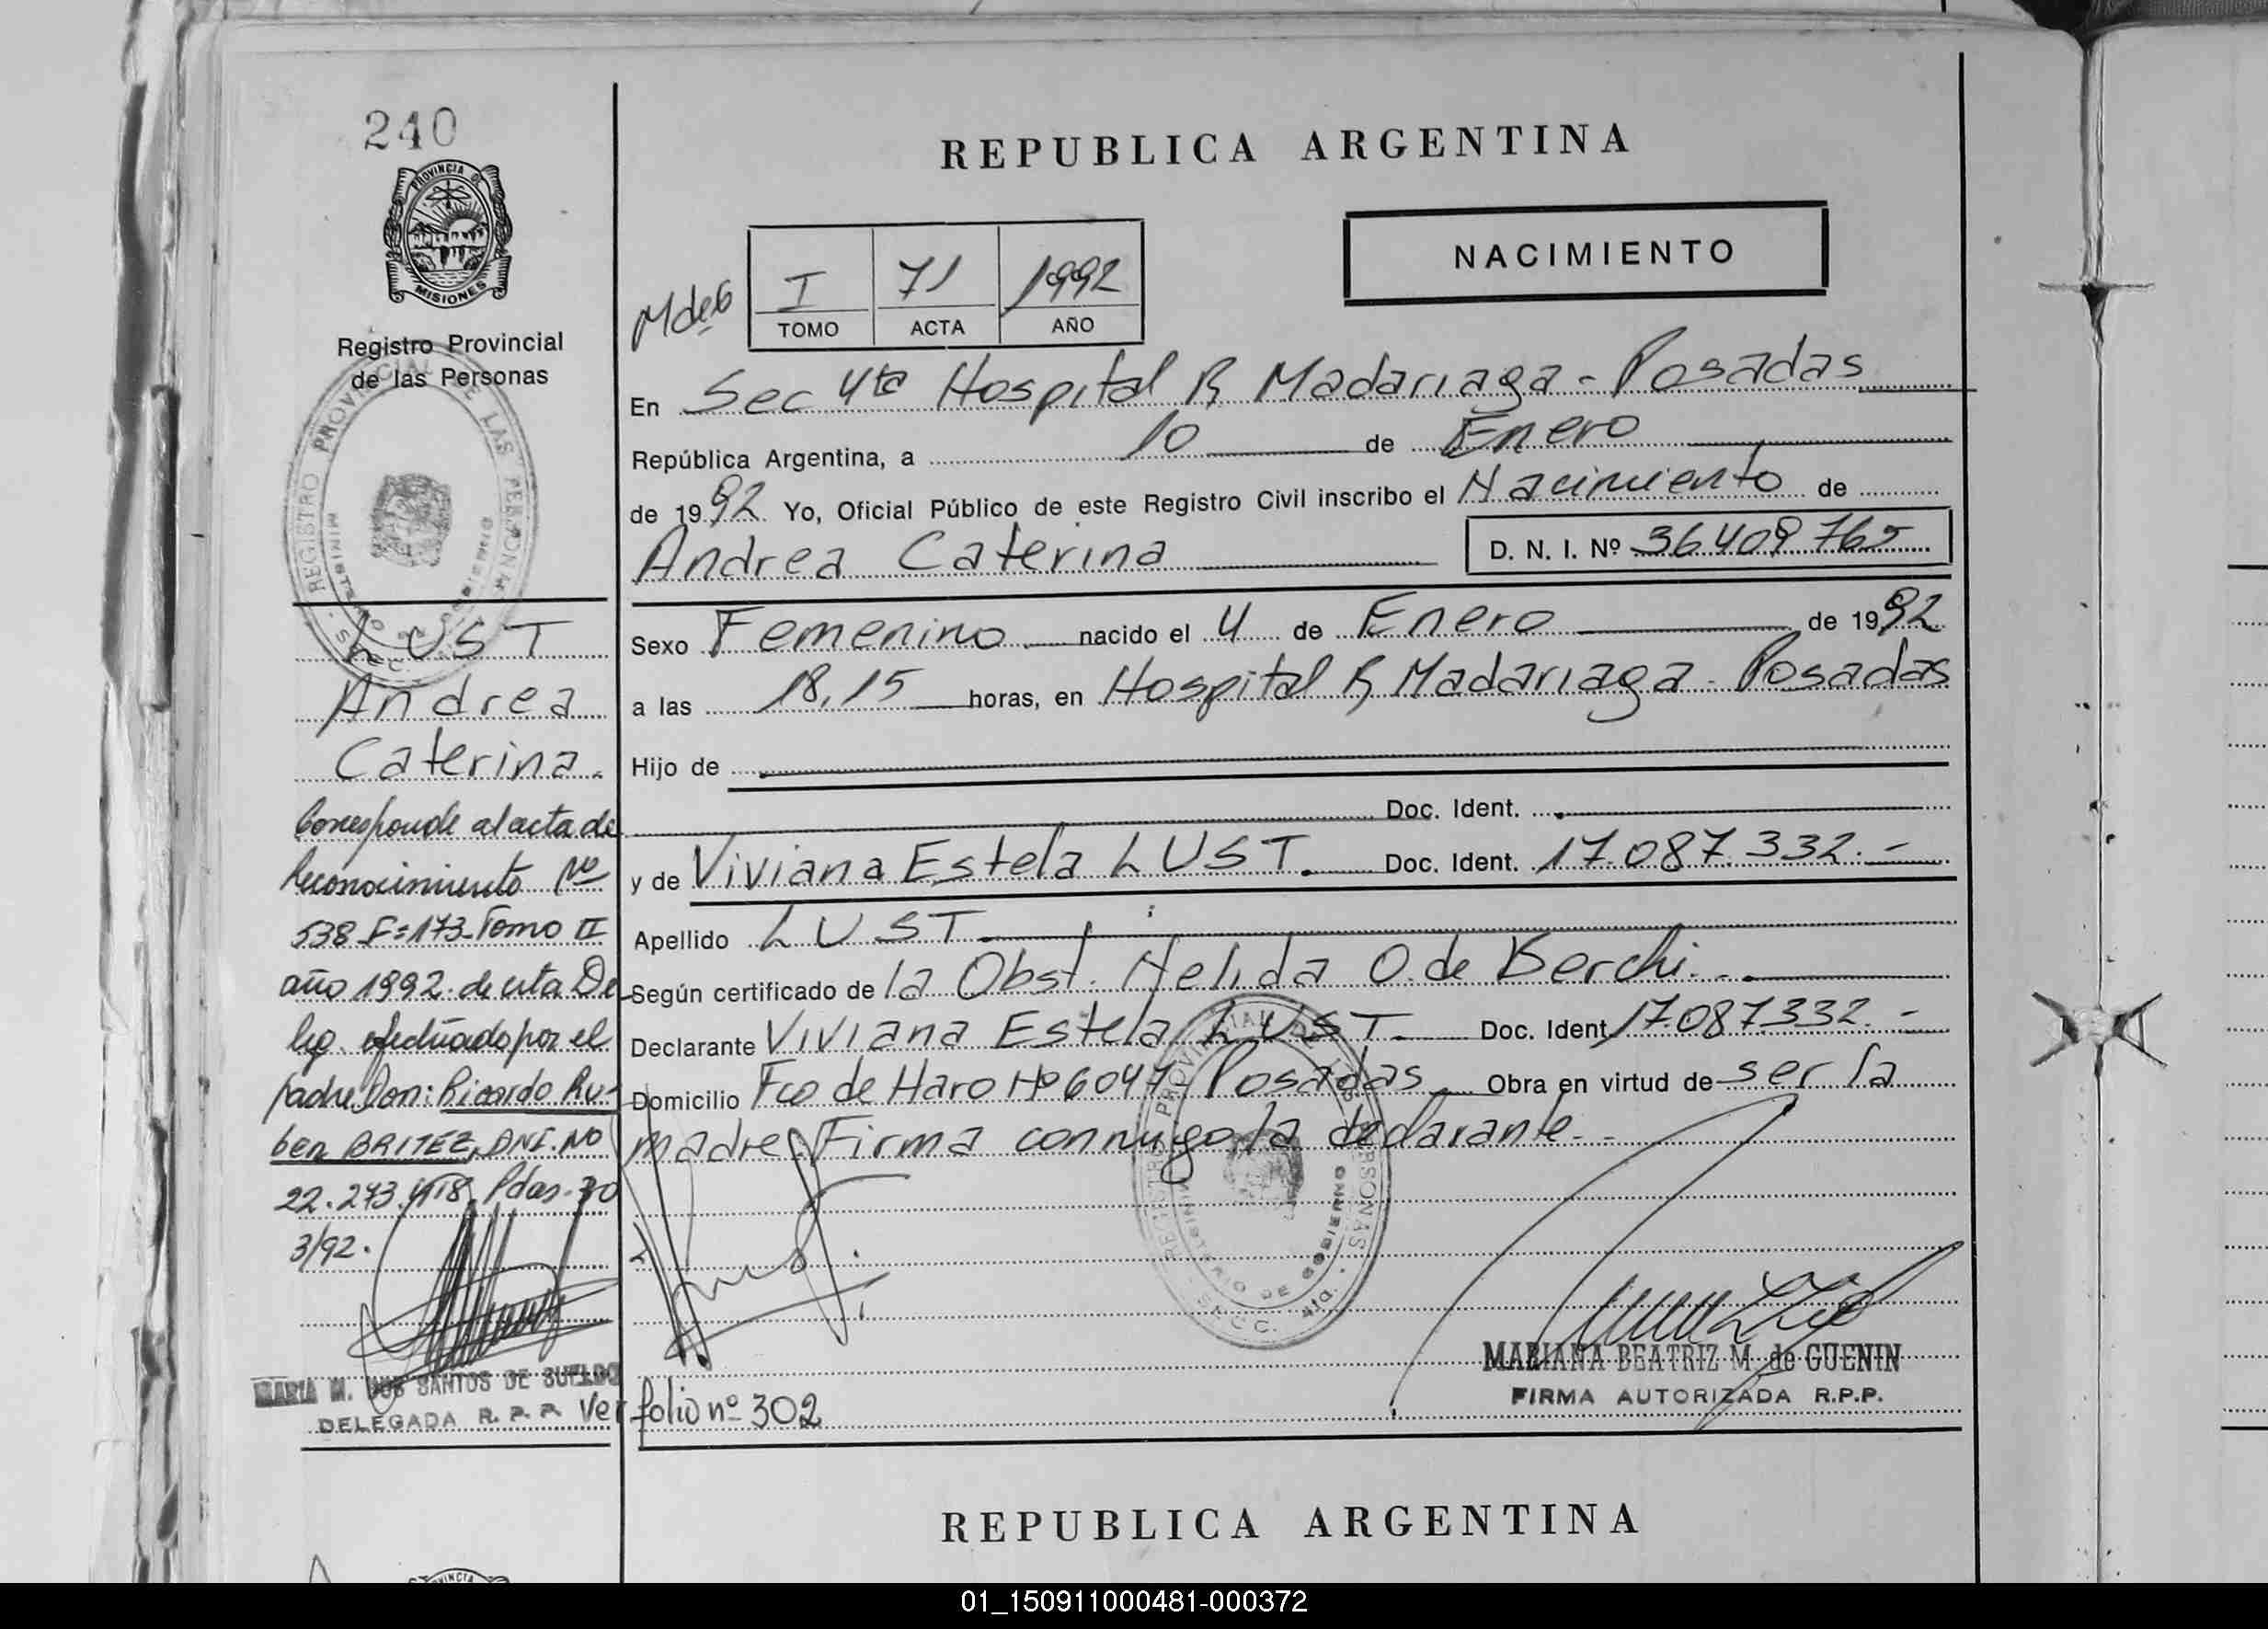 240
PROVINCIA DE
MISIONES
Registro Provincial
de las Personas
REGISTRO PROVINCIAL DE LAS PERSONAS
LUST
Andrea
Caterina.
Corresponde al acta de
Reconocimiento Nº
538 F=173-Tomo II
año 1992. de esta De
leg. efectuado por el
padre Don: Ricardo Ru-
ben BRITEZ, DNI. Nº
22.273.418. Pdas. 30
3/92.
MARIA M. DOS SANTOS DE SUELDO
DELEGADA R. P. P.
REPUBLICA ARGENTINA
NACIMIENTO
M de G
I 71 1992
TOMO ACTA AÑO
En Sec 4ta Hospital R Madariaga - Posadas
República Argentina, a 10 de Enero
de 1992 Yo, Oficial Público de este Registro Civil inscribo el Nacimiento de
Andrea Caterina D. N. I. Nº 36409765
Sexo Femenino nacido el 4 de Enero de 1992
a las 18,15 horas, en Hospital R Madariaga - Posadas
Hijo de
Doc. Ident.
y de Viviana Estela LUST. Doc. Ident. 17.087.332.-
Apellido LUST
Según certificado de la Obst. Nelida O. de Berchi.
Declarante Viviana Estela LUST. Doc. Ident. 17.087332.-
Domicilio Fco de Haro Nº 6047 Posadas Obra en virtud de ser la
madre. Firma conmigo la declarante.
REGISTRO PROVINCIAL DE LAS PERSONAS
MINISTERIO DE GOBIERNO
MARIANA BEATRIZ M. de GUENIN
FIRMA AUTORIZADA R.P.P.
Ver folio nº 302
REPUBLICA ARGENTINA
01_150911000481-000372